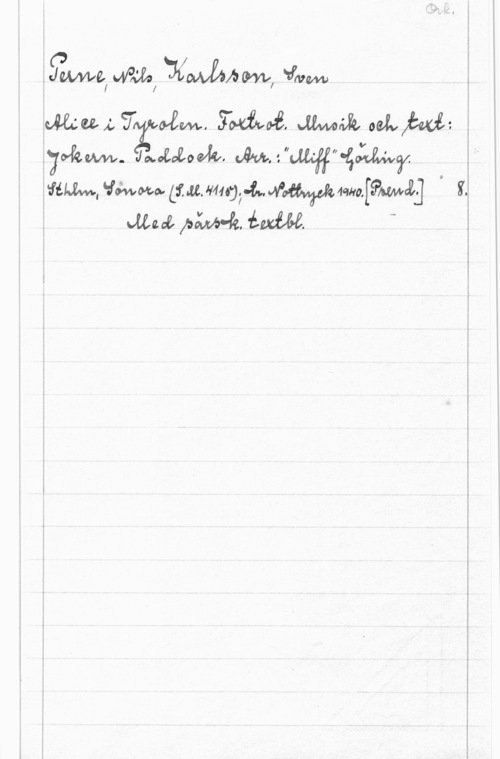 Ork.
Perne, Nils, Karlsson, Sven
Alice i Tyrolen. Foxtrot. Musik och text:
Jokern - Paddock. Arr.: "Miff" Görling.
Sthlm, Sonora (S.M. 4116); tr. Nottryck 1940. [Pseud.] 8.
Med särsk. textbl.